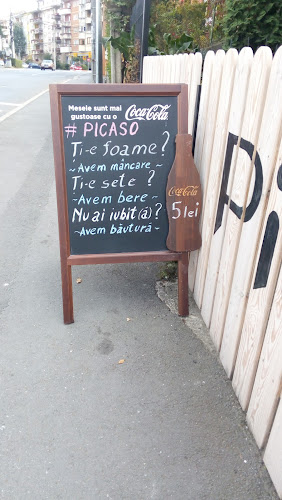 Mesele sunt mai
gustoase cu o
Coca-Cola
# PICASO
Ți-e foame?
~ Avem mâncare ~
Ți-e sete ?
~ Avem bere ~
Nu ai iubit@?
~ Avem băutură ~
Coca-Cola
5 lei